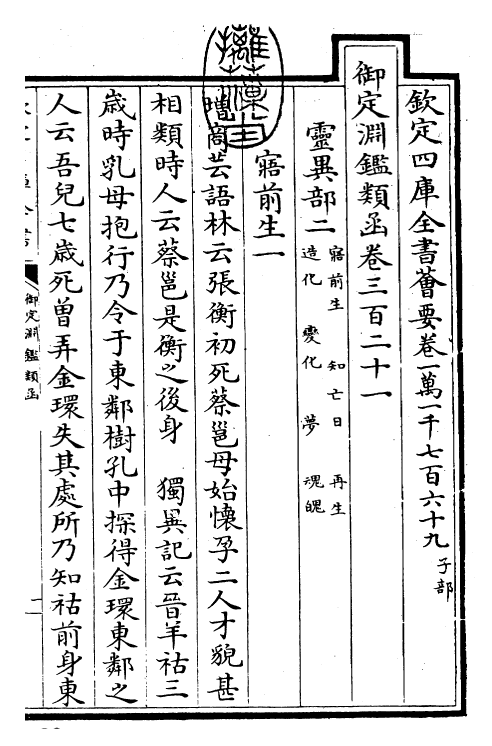 欽定四庫全書薈要卷一萬一千七百六十九 子部
御定淵鑑類函卷三百二十一
靈異部二 寤前生 知亡日 再生
造化 變化 夢 魂魄
寤前生一
增商芸語林云張衡初死蔡邕母始懷孕二人才貌甚
相類時人云蔡邕是衡之後身 獨異記云晉羊祜三
歲時乳母抱行乃令于東鄰樹孔中探得金環東鄰之
人云吾兒七歲死曽弄金環失其處所乃知祜前身東
御定淵鑑類函